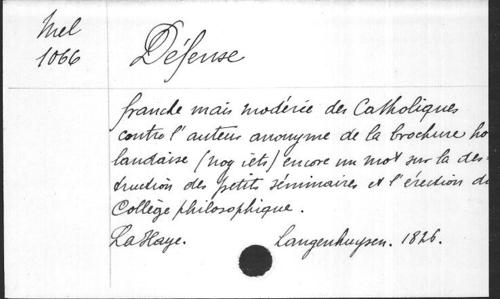 Mel
1066
Défense
franche mais modérée des Catholiques
contre l'auteur anonyme de la brochure ho
landaise (nog iets) encore un mot sur la des-
truction des petits séminaires et l'érection du
Collège philosophique.
La Haye. Langenhuysen. 1826.